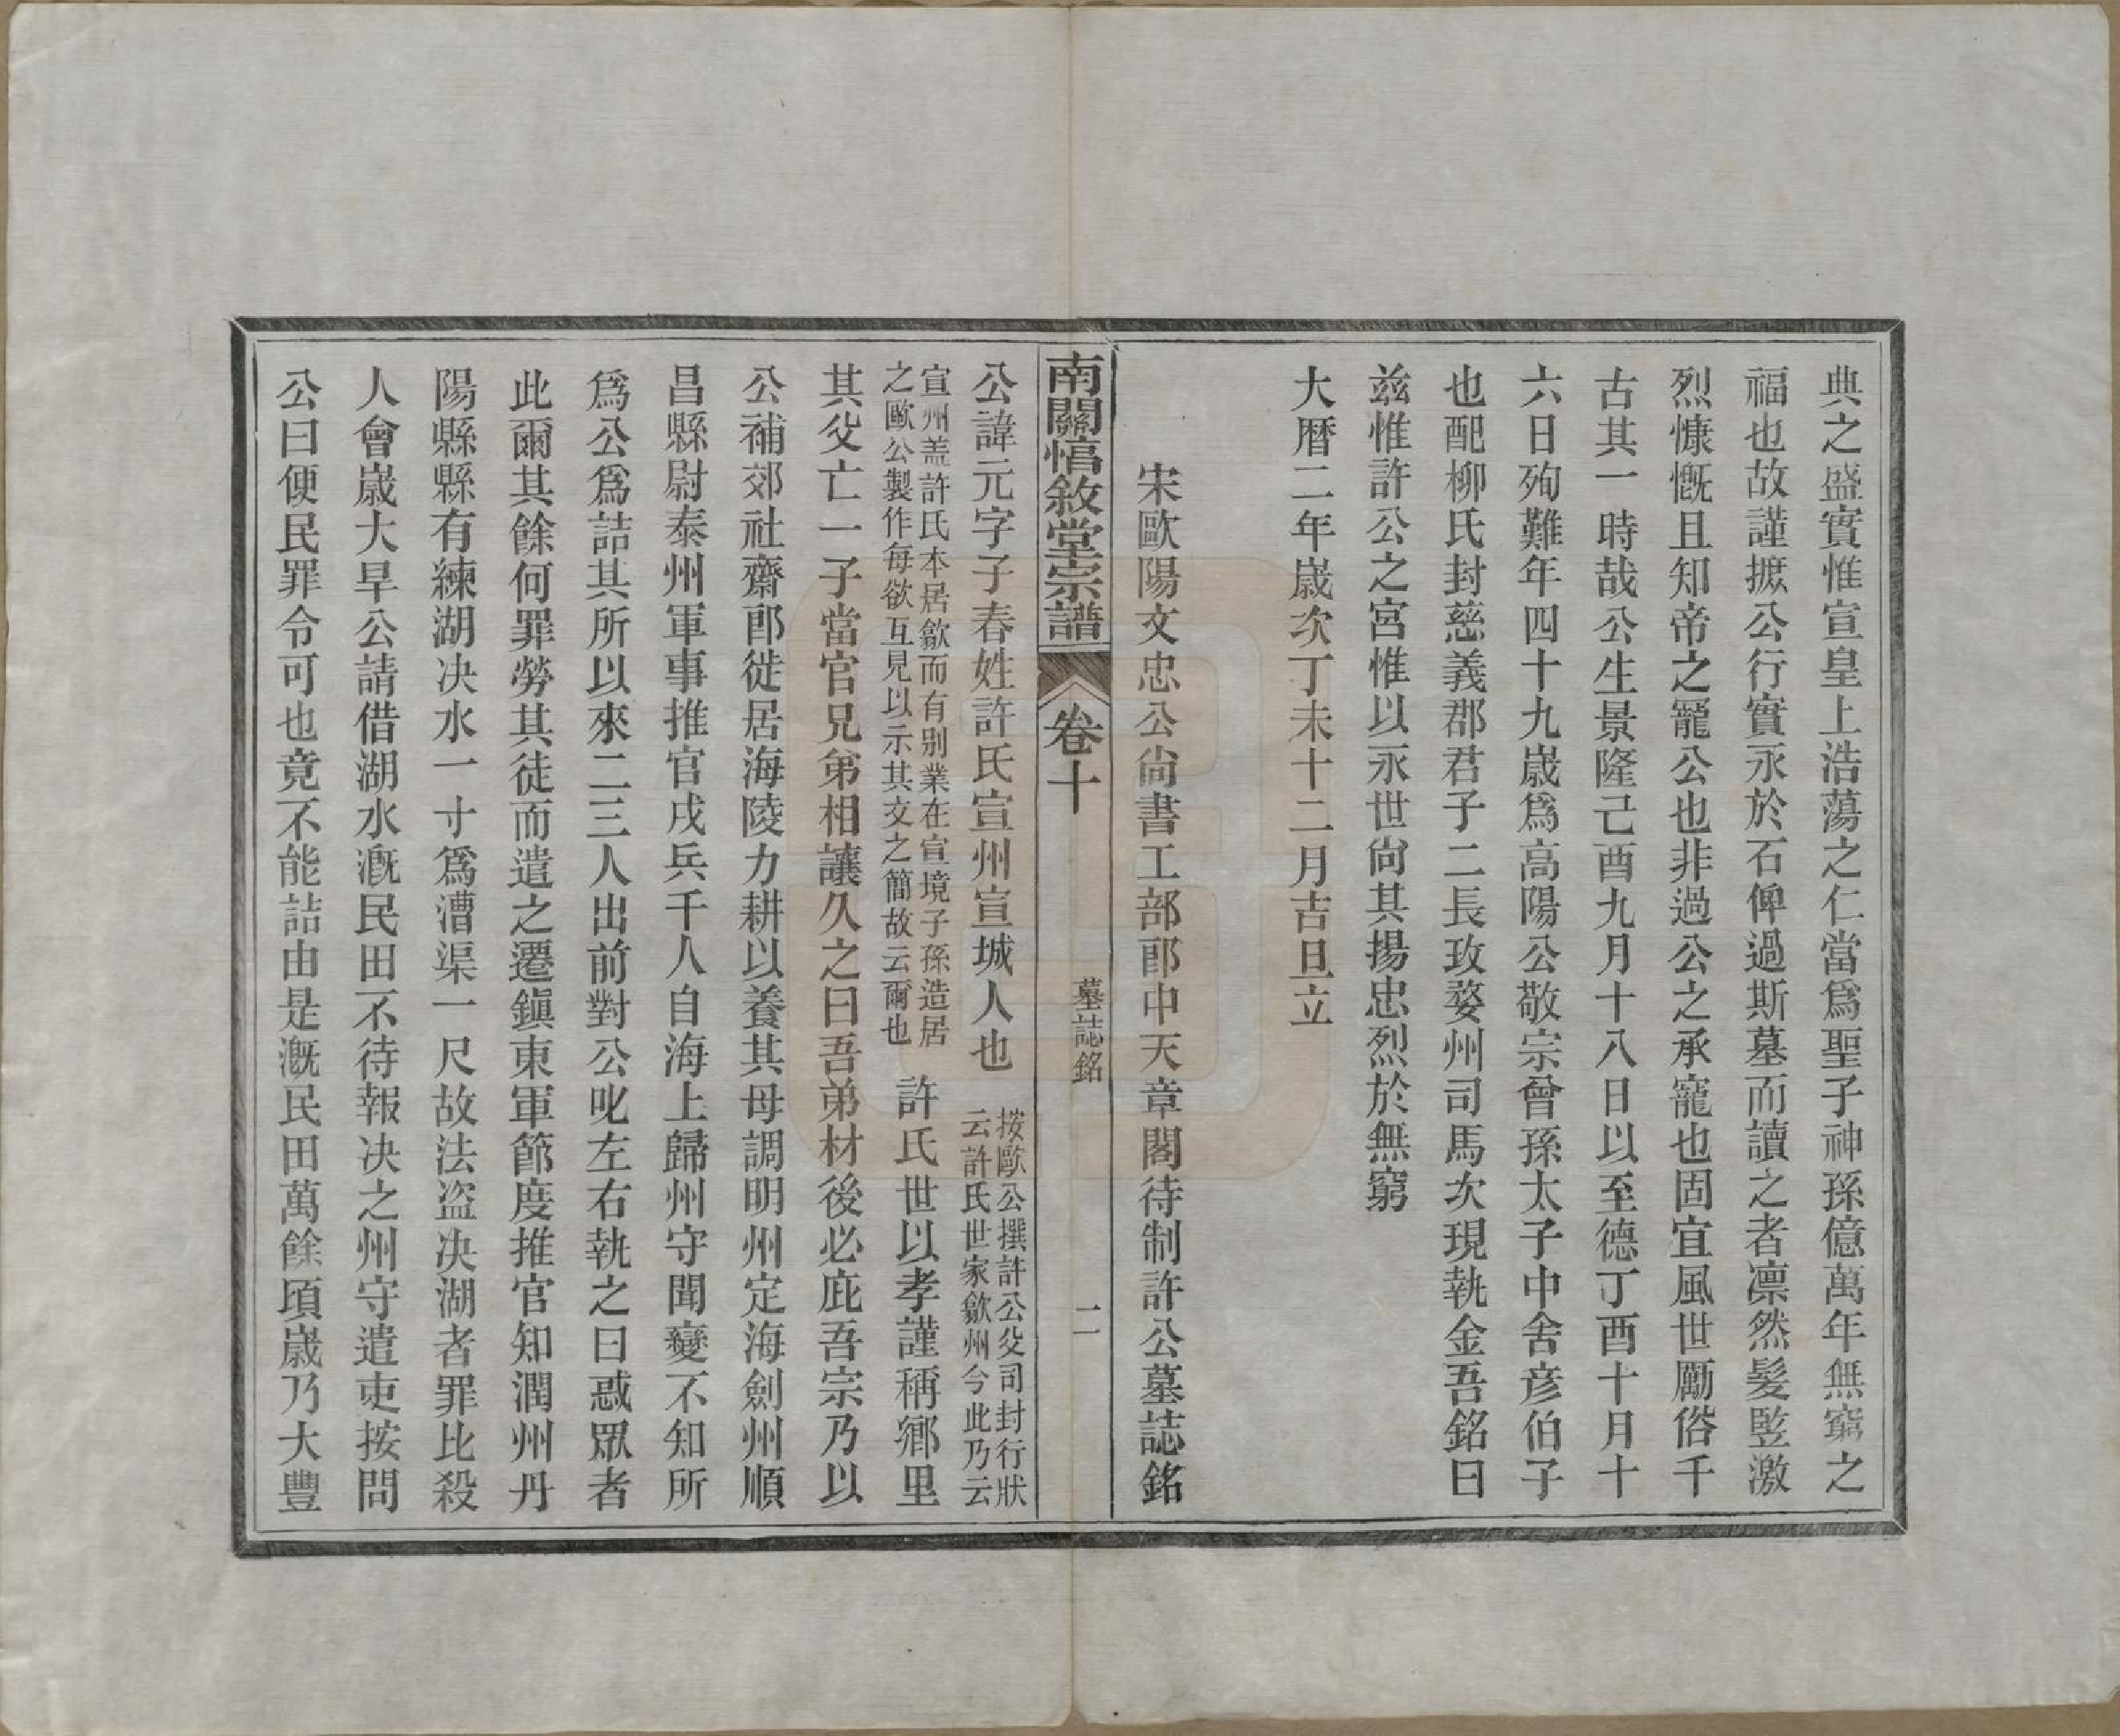 典之盛實惟宣皇上浩蕩之仁當爲聖子神孫億萬年無窮之
福也故謹摭公行實永於石俾過斯墓而讀之者凛然髮豎激
烈慷慨且知帝之寵公也非過公之承寵也固宜風世勵俗千
古其一時哉公生景隆己酉九月十八日以至德丁酉十月十
六日殉難年四十九歲爲高陽公敬宗曾孫太子中舍彦伯子
也配柳氏封慈義郡君子二長玫婺州司馬次現執金吾銘曰
兹惟許公之宮惟以永世尚其揚忠烈於無窮
大曆二年歲次丁未十二月吉旦立
宋歐陽文忠公尚書工部郎中天章閣待制許公墓誌銘
南關惇敘堂宗譜 卷十 墓誌銘 二
公諱元字子春姓許氏宣州宣城人也 按歐公撰許公父司封行狀
云許氏世家歙州今此乃云
宣州盖許氏本居歙而有别業在宣境子孫造居
之歐公製作每欲互見以示其文之簡故云爾也 許氏世以孝謹稱鄉里
其父亡一子當官兄弟相讓久之曰吾弟材後必庇吾宗乃以
公補郊社齋郎徙居海陵力耕以養其母調明州定海劍州順
昌縣尉泰州軍事推官戍兵千人自海上歸州守聞變不知所
爲公爲詰其所以來二三人出前對公叱左右執之曰惑眾者
此爾其餘何罪勞其徒而遣之遷鎭東軍節度推官知潤州丹
陽縣縣有練湖决水一寸爲漕渠一尺故法盗决湖者罪比殺
人會歲大旱公請借湖水溉民田不待報决之州守遣吏按問
公曰便民罪令可也竟不能詰由是溉民田萬餘頃歲乃大豐